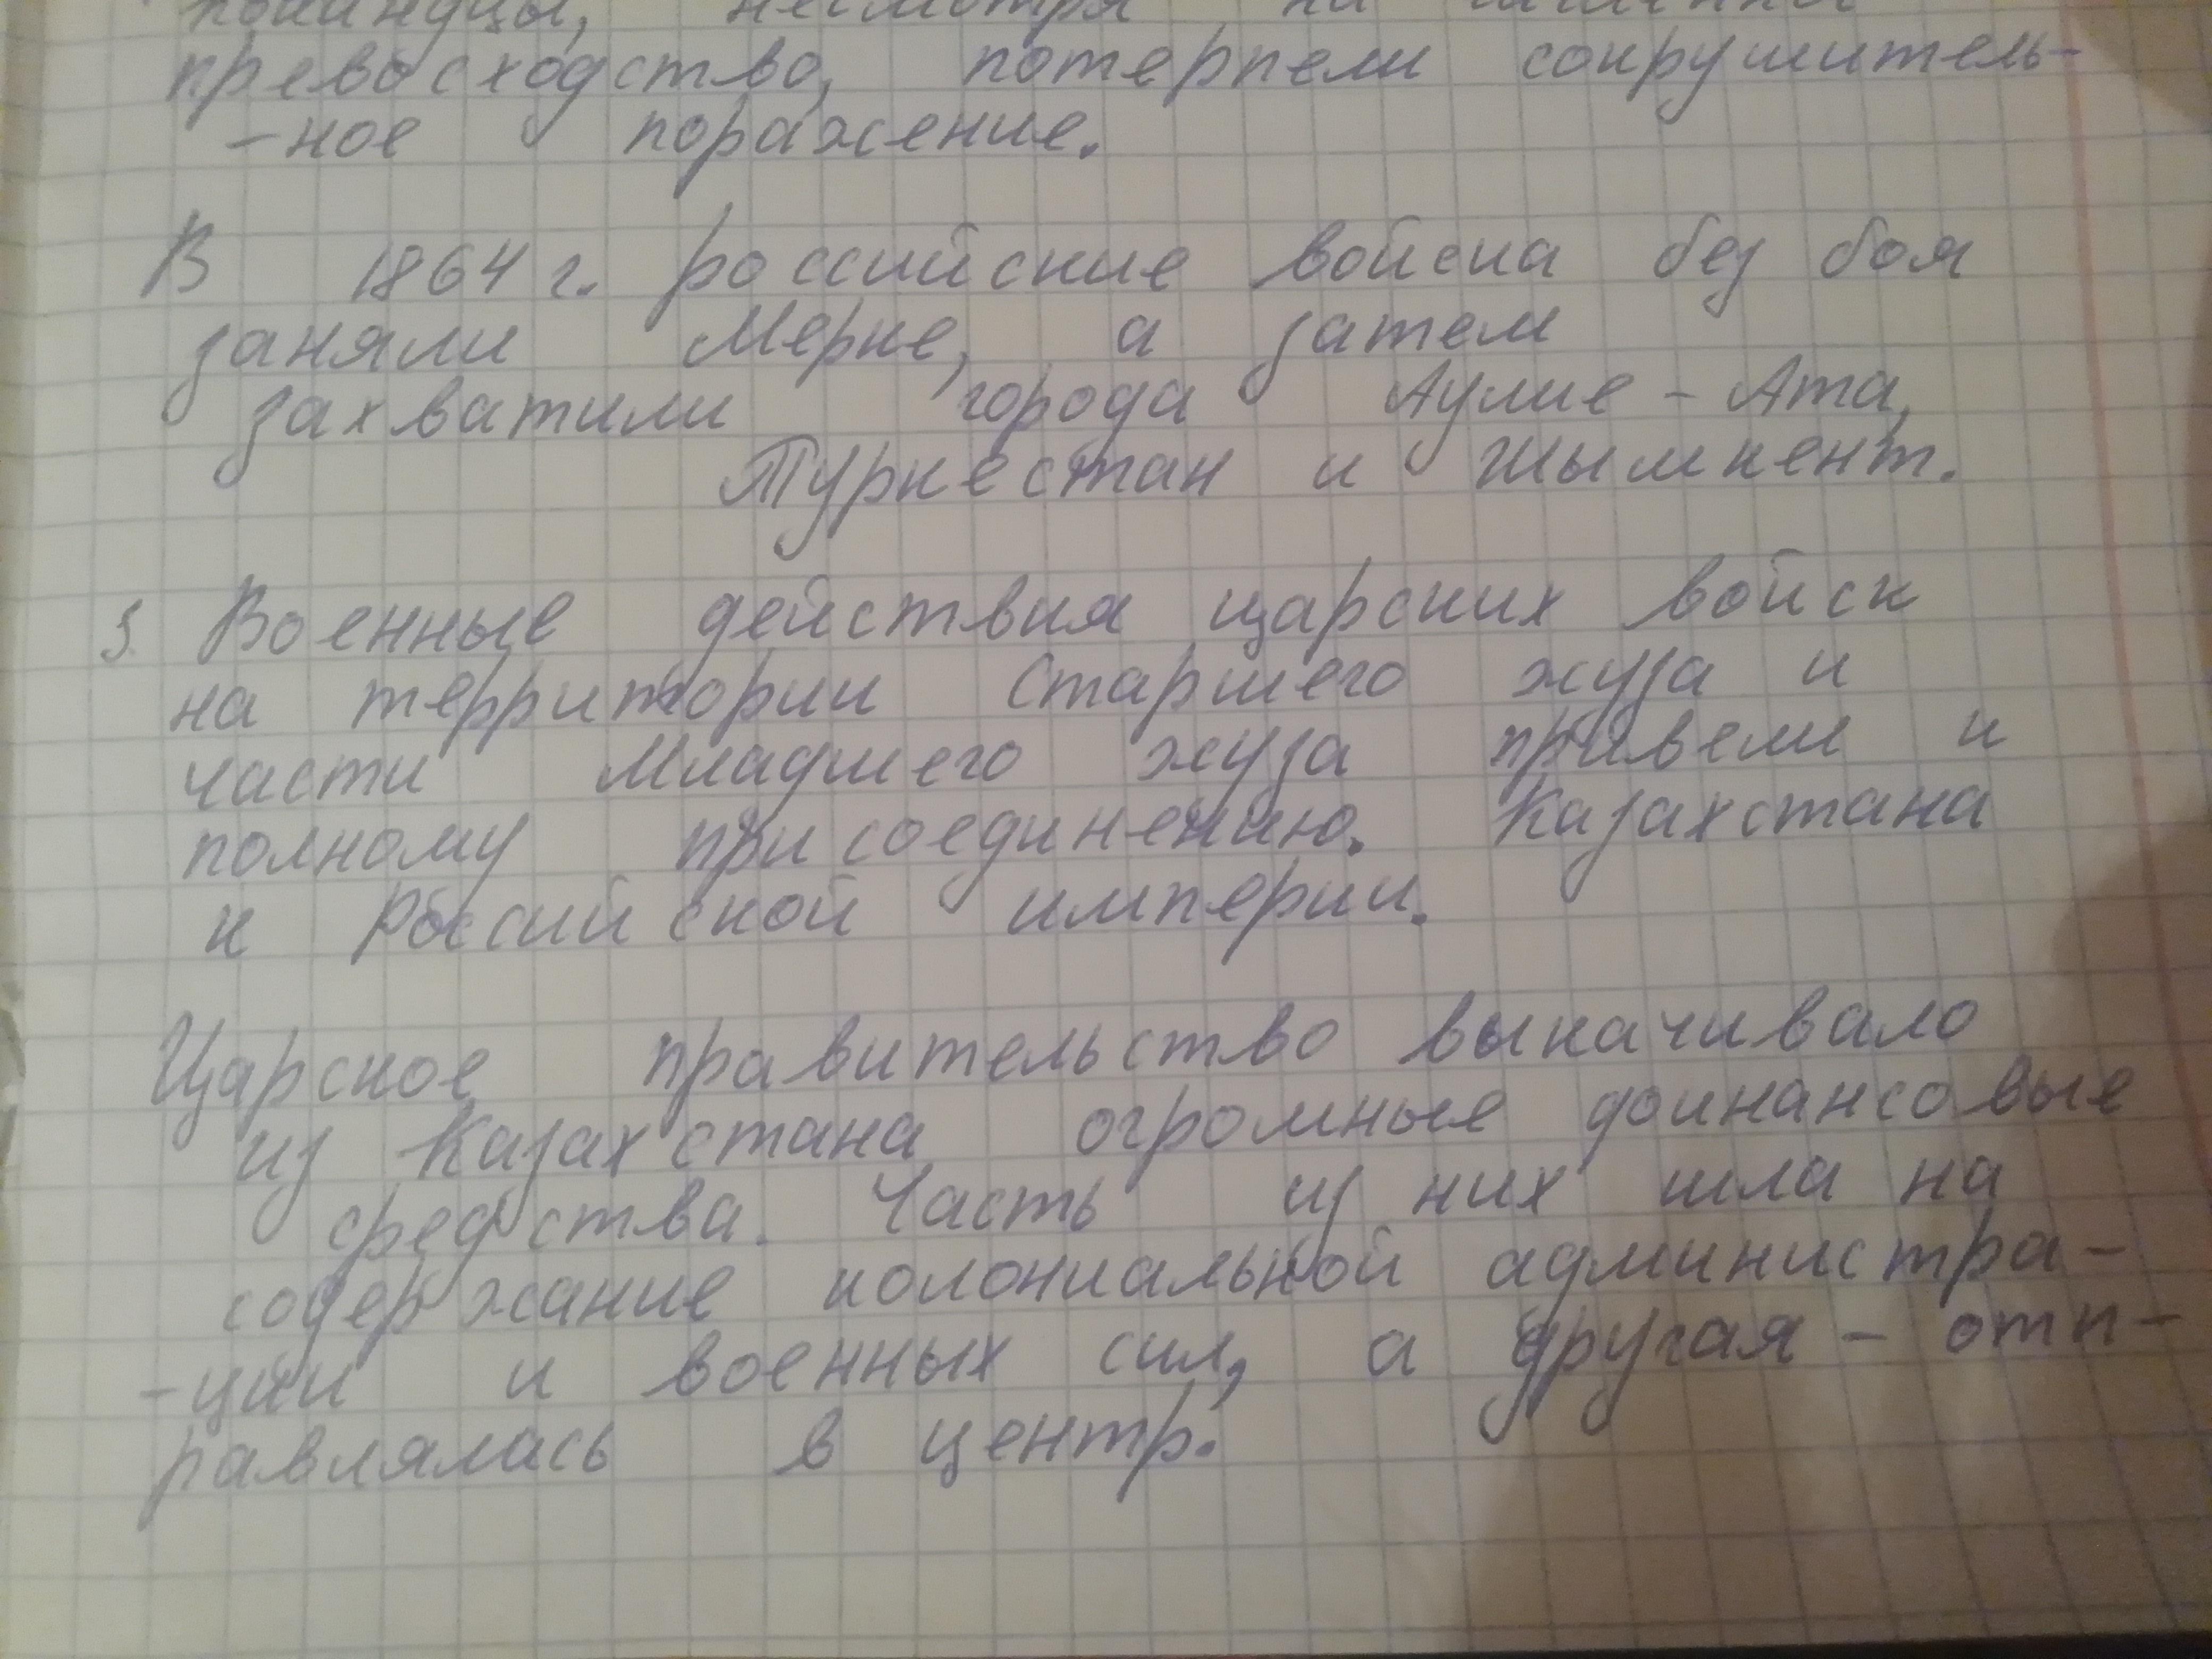 несмотря на
превосходство, потерпели сокрушитель-
-ное поражение.
В 1864 г. российские войска без боя
заняли Мерке, а затем
захватили города Аулие - Ата,
Туркестан и Шымкент.
3. Военные действия царских войск
на территории Старшего жуза и
части Младшего жуза привели к
полному присоединению. Казахстана
к Российской империи.
Царское правительство выкачивало
из Казахстана огромные финансовые
средства. Часть из них шла на
содержание колониальной администра-
-ции и военных сил, а другая - отп-
равлялась в центр.